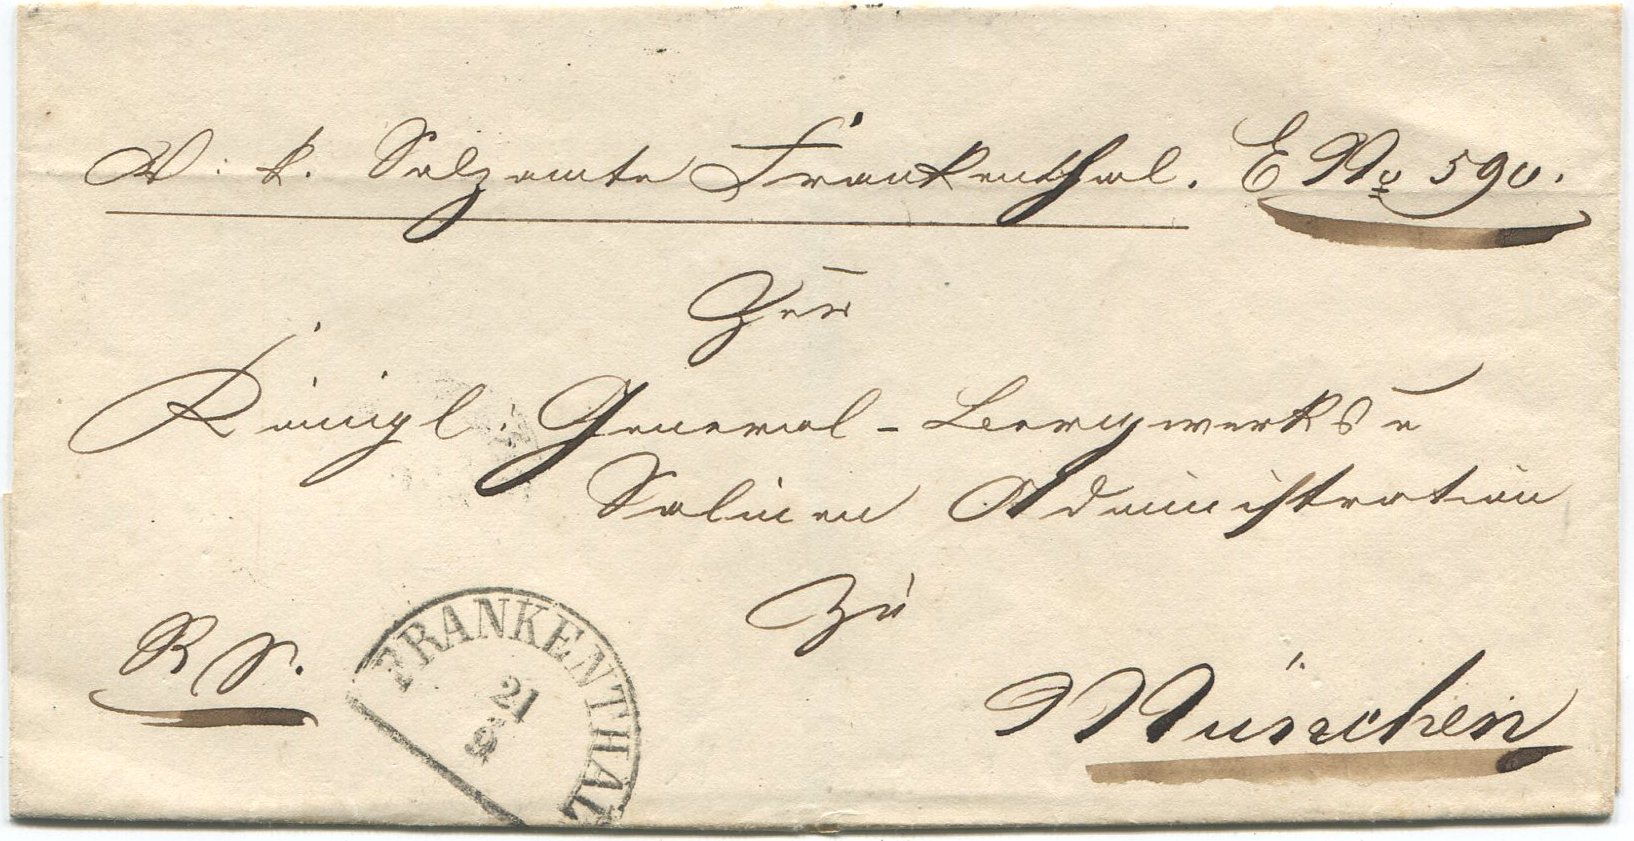 V. k. Salzamte Frankenthal. E No 590.
Zur
Königl: General-Bergwerks u
Salinen Administration
Zu
R S.
München
FRANKENTHAL
21
9